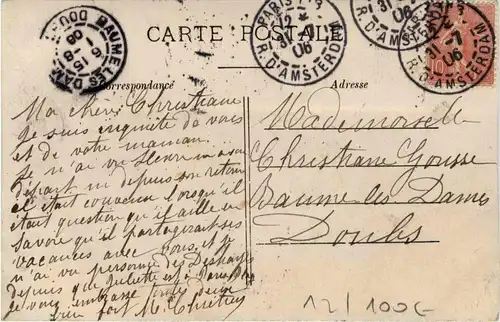 CARTE POSTALE
Correspondance
Adresse
BAUME-LES-DAMES DOUBS
PARIS
R. D'AMSTERDAM
31 06
R. D'AMSTERDAM
06
R. D'AMSTERDAM
Ma chère Christiane
Je suis inquiète de vous
et de votre maman.
Je n'ai vu Henri ni à son
départ ni depuis son retour
il était convenu lorsqu'il
était question qu'il aille en
Savoie qu'il partagerait ses
vacances avec vous, et je
n'ai vu personne des
depuis que Juliette est à
Je vous embrasse toutes deux
bien fort M.
Mademoiselle
Christiane
Baume les Dames
Doubs
12/100